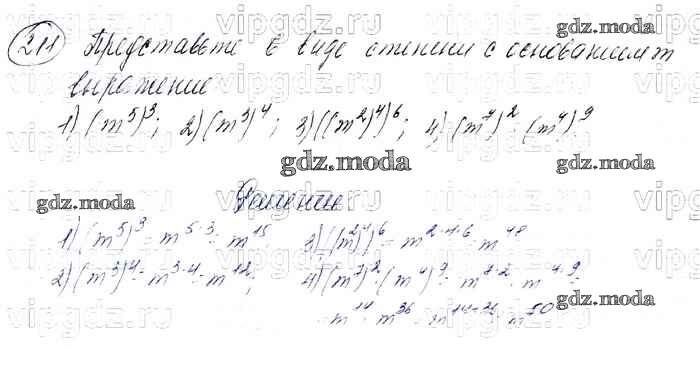 211 Представьте в виде степени с основанием m
выражение
1) (m⁵)³; 2) (m³)⁴; 3) ((m²)⁴)⁶; 4) (m⁷)² · (m⁴)⁹
gdz.moda
Решение
1) (m⁵)³ = m⁵·³ = m¹⁵ 3) ((m²)⁴)⁶ = m²·⁴·⁶ = m⁴⁸
2) (m³)⁴ = m³·⁴ = m¹²; 4) (m⁷)² · (m⁴)⁹ = m⁷·² · m⁴·⁹ =
= m¹⁴ · m³⁶ = m¹⁴⁺³⁶ = m⁵⁰
vipgdz.ru